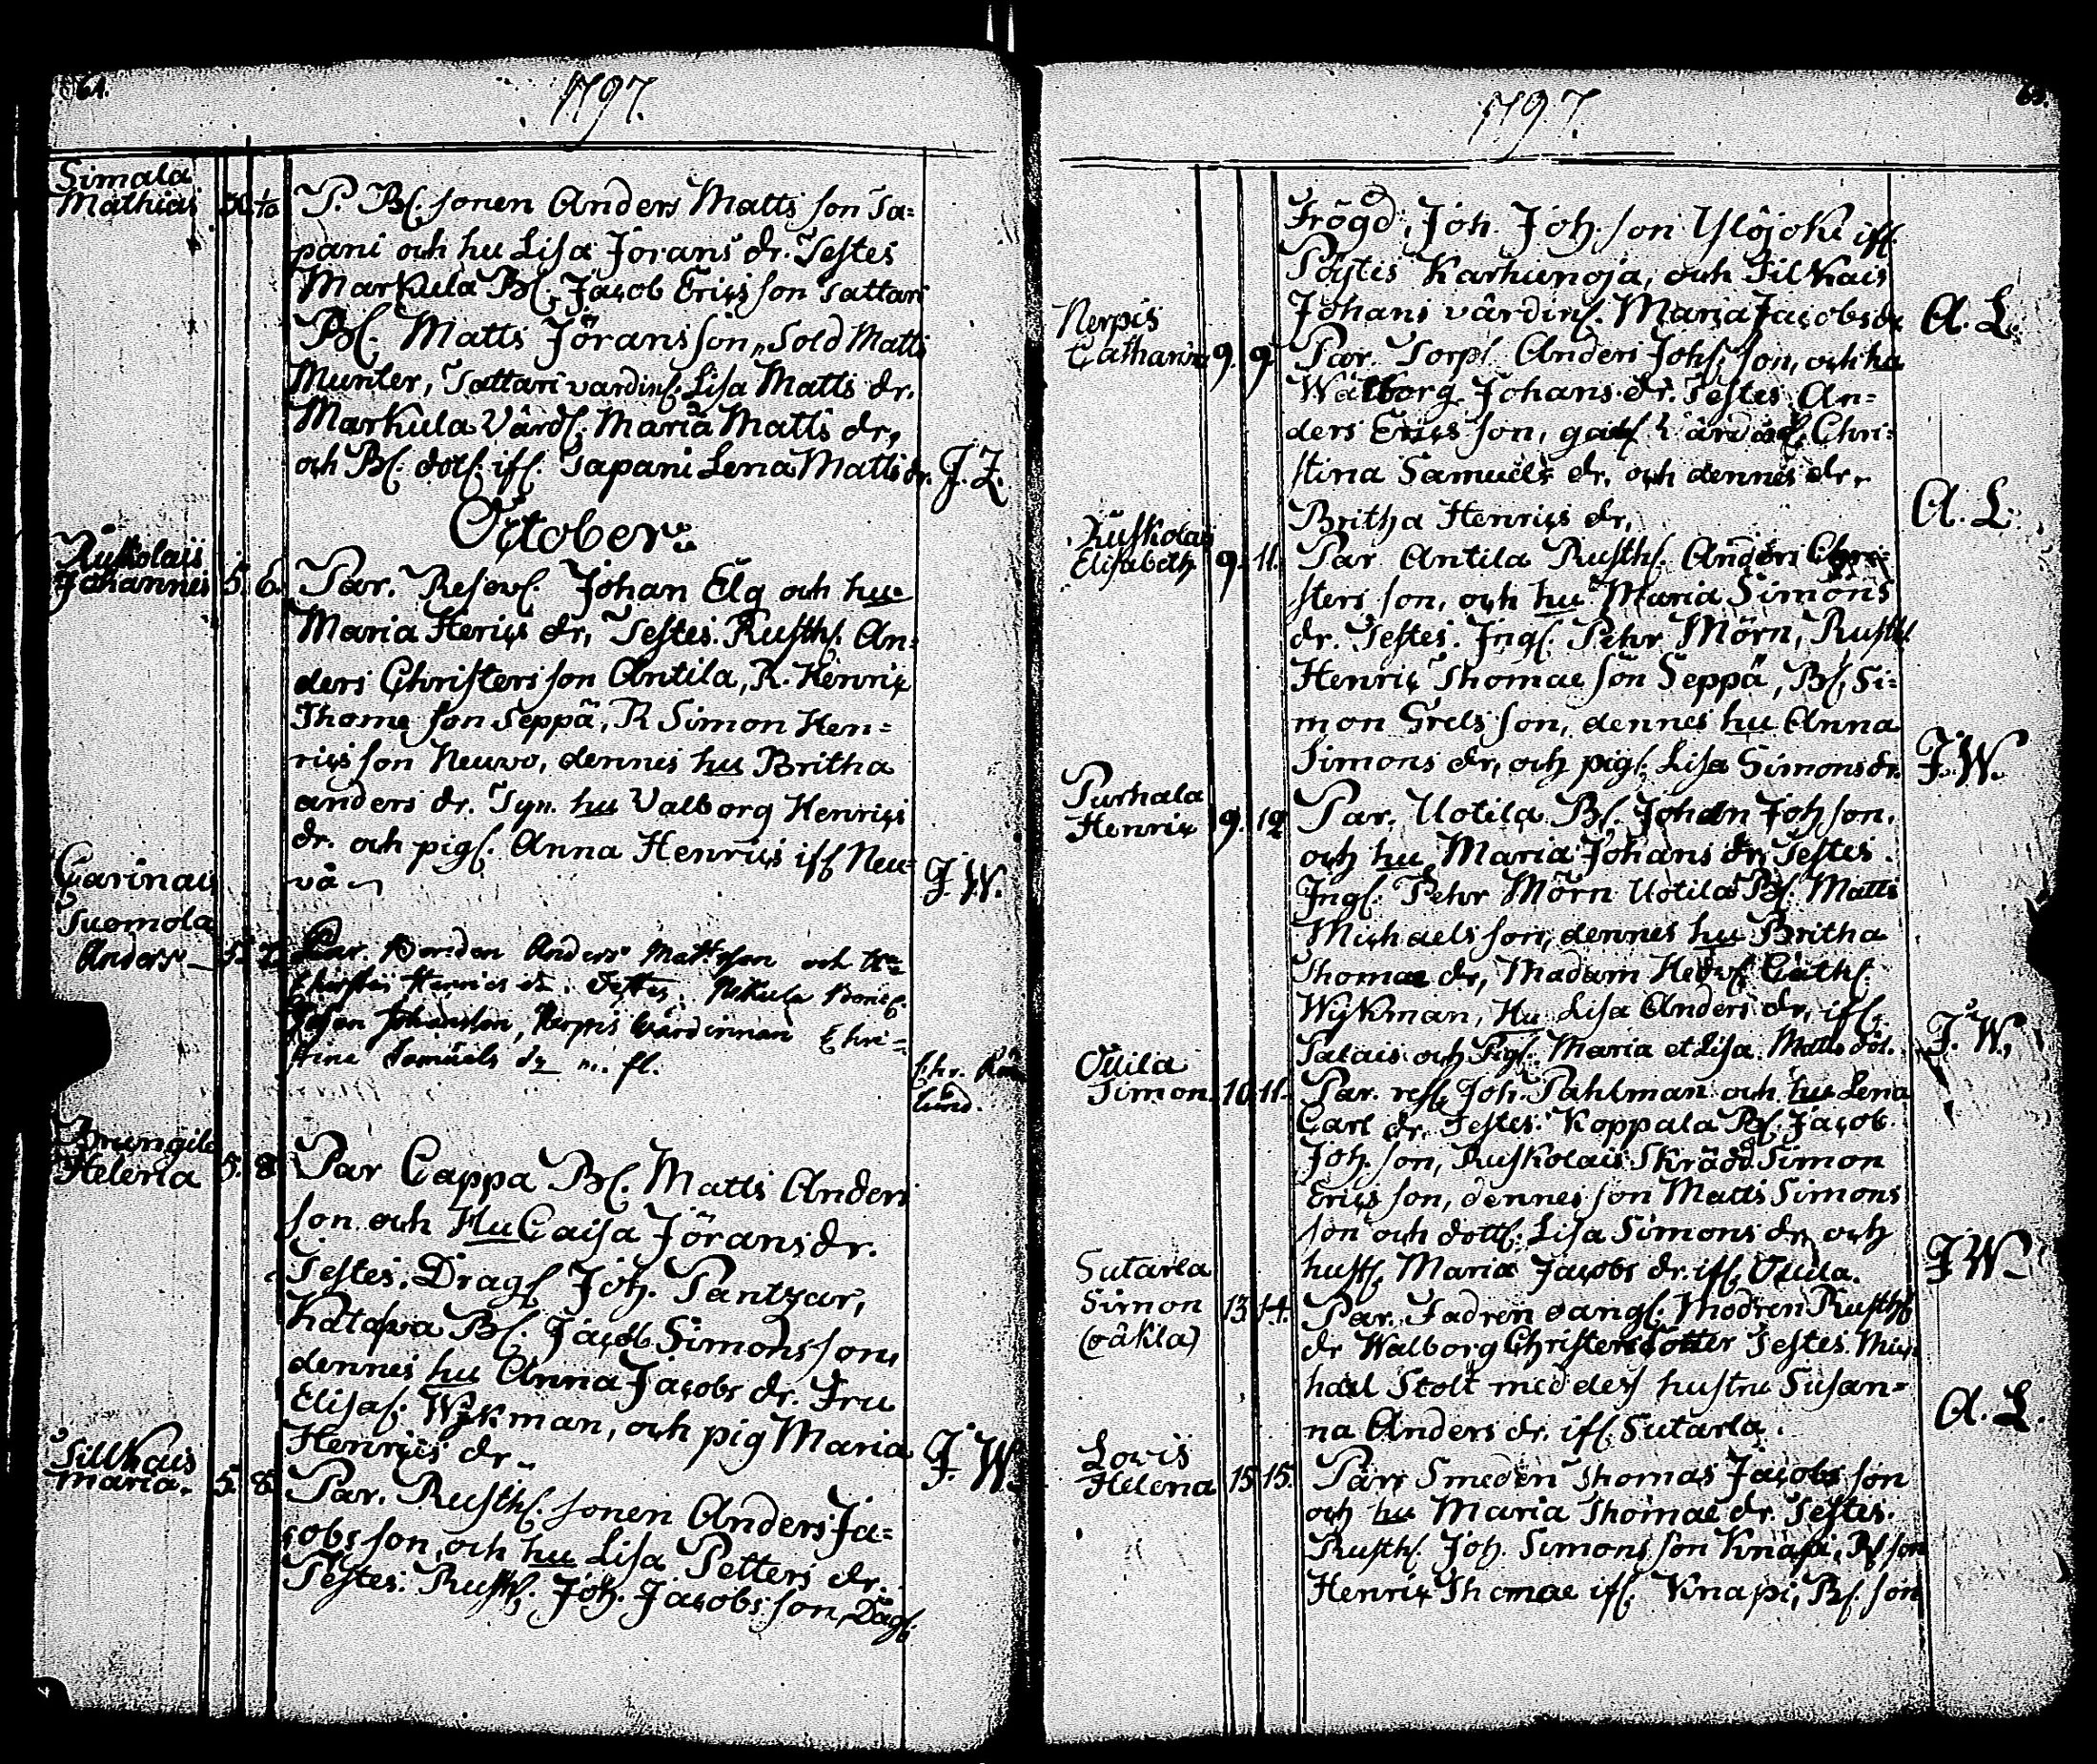 64.
1797.
Simala
Mathias 30. 1/10 P. B/. sonen Anders Matts son Ta=
pani och hu Lisa Jörans dr. Testes
Markula B/. Jacob Erics son Tattari
B/. Matts Jörans son, Sold Matts
Munter, Tattari värdin/. Lisa Matts dr.
Markula Värd/. Maria Matts dr,
och B/. dott/. if/. Tapani Lena Matts dr. J. Z.
October.
Ruskolais
Johannes 5. 6. Par. Reserv/. Johan Elg och hu
Maria Herics dr, Testes. Rusth/. An=
ders Christers son Antila, R. Henric
Thome son Seppä, R Simon Hen=
rics son Neuvo, dennes hu Britha
anders dr. Tyn. hu Valborg Henrics
dr. och pig/. Anna Henrics if/ Neu=
vå J. W.
Carinais
Suomola
Anders 5. 7. Par. Bonden Anders Mattsson och hu
Henrics dr. Testes. Bond/.
Johan Johansson, Nerpis värdinnan Chri=
stina Samuels dr m. fl.
Chr. Rön
lund.
Brungila
Helena 5. 8. Par Cappa B/. Matts Anders
son och Hu Caisa Jörans dr.
Testes. Drag/ Joh. Pantzar,
Katava B/. Jacob Simons son,
dennes hu Anna Jacobs dr. Fru
Elisa/. Wykman, och pig Maria
Henrics dr. J. W.
Sillkais
Maria. 5. 8. Par. Rusth/. sonen Anders Ja=
cobs son, och hu Lisa Petters dr.
Testes. Rusth/. Joh. Jacobs son, Dag/.
65.
1797.
Trögd, Joh. Joh. son Ylöjoki if/.
Pöytis Karhunoja, och Silkais
Johans värdin/. Maria Jacobs dr A. L.
Nerpis
Catharina 9. 9. Par. Torp/. Anders Joh/. son, och hu
Walborg Johans dr. Testes An=
ders Erics son, Chri=
stina Samuels dr, och dennes dr,
Britha Henrics dr, A. L.
Ruskolais
Elisabeth 9. 11. Par Antila Rusth/. Anders Chri=
sters son, och hu Maria Simons
dr. Testes. Jng/. Pehr Mörn, Rusth/.
Henric Thomae son Seppä, B/. Si=
mon Grels son, dennes hu Anna
Simons dr, och pig/. Lisa Simons dr. J. W.
Purhala
Henric 9. 12 Par. Uotila B/. Johan Joh son,
och hu Maria Johans dr, Testes.
Jng/. Pehr Mörn Uotila B/. Matts
Michaels son, dennes hu Britha
Thomae dr, Madam Hedv/. Cath/.
Wykman, Hu Lisa Anders dr, if/.
Salais och Pig/. Maria et Lisa Matts döt. J. W.
Ouila
Simon. 10. 11. Par. res/. Joh. Pahlman och hu Lena
Carl dr. Testes. Koppala B/. Jacob
Joh. son, Ruskolais Skrädd. Simon
Erics son, dennes son Matts Simons
son och dott/. Lisa Simons dr, och
hust/. Maria Jacobs dr. if/. Ouila. J W.
Sutarla
Simon 13. 14. Par. Fadren oäng/. Modren Rusth/
(oäkta) dr Walborg Christers dotter Testes. Mic
hael Stolt med dess hustru Susan=
na Anders dr. if/. Sutarla. A. L.
Lovis
Helena 15. 15. Par. Smeden Thomas Jacobs son
och hu Maria Thomae dr. Testes.
Rusth/. Joh. Simons son Knapi, B/ son
Henric Thomae if/. Knapi, B/. son